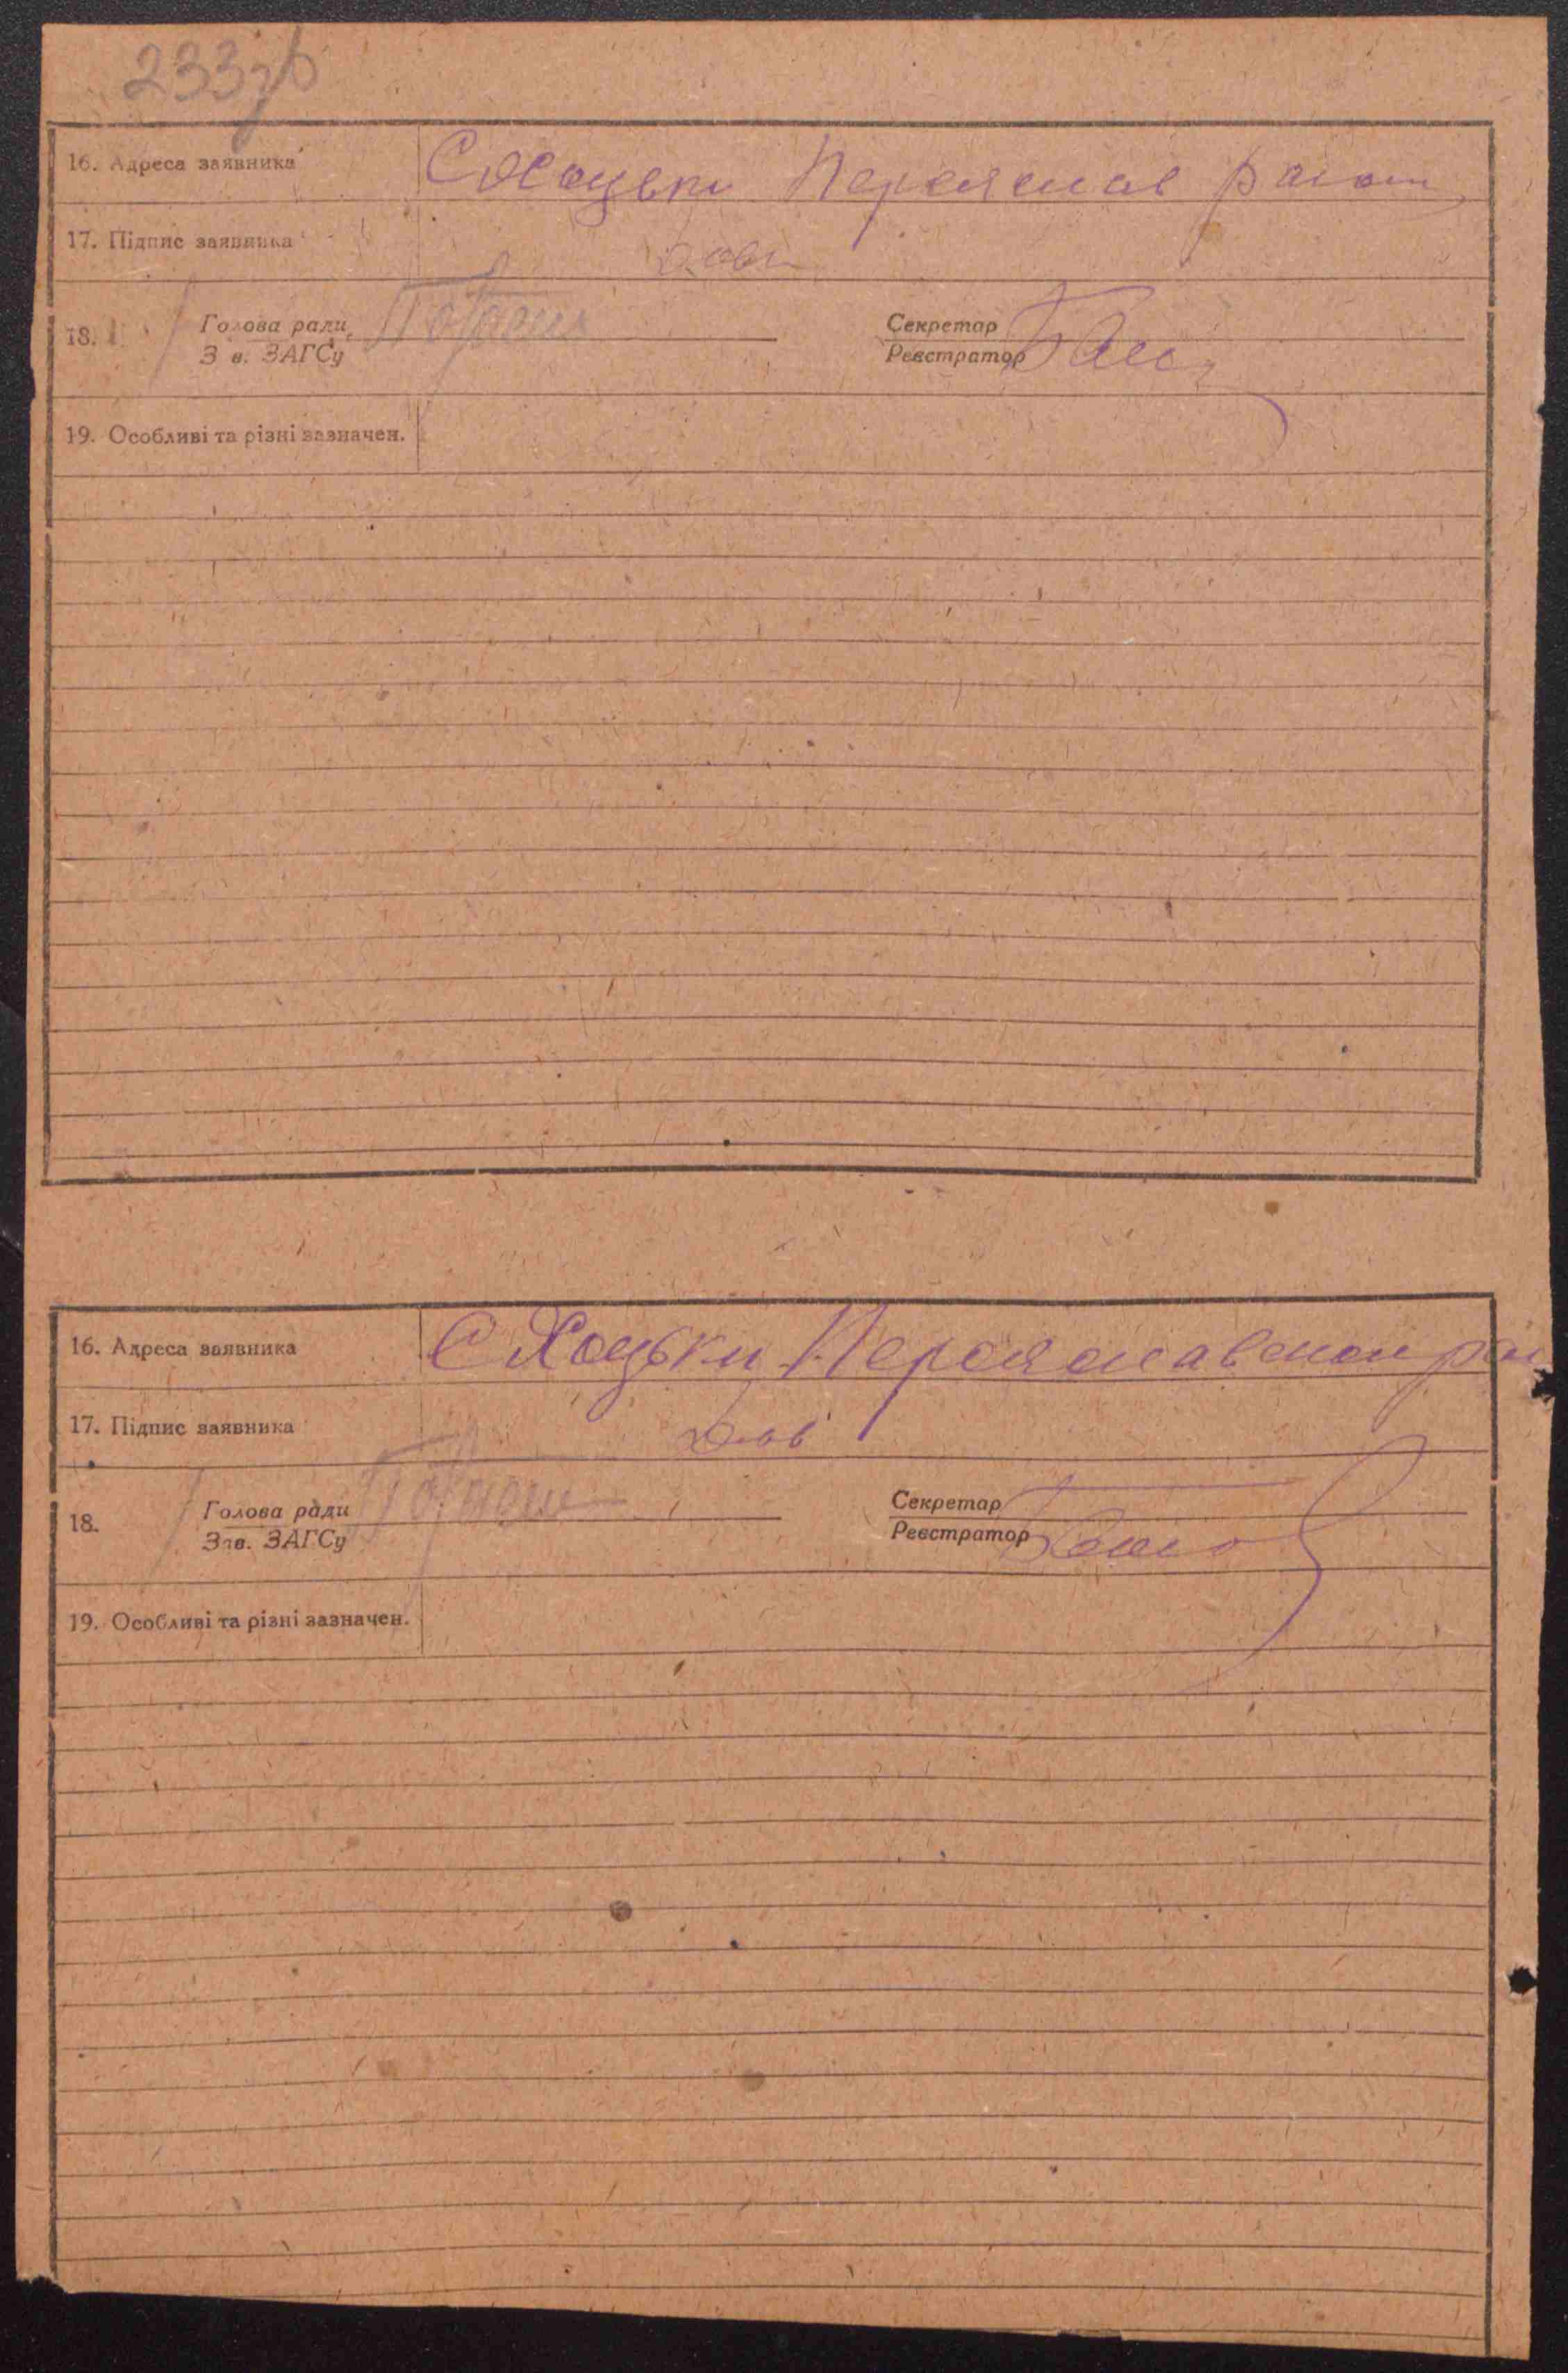 233зв
16. Адреса заявника С Хоцьки Переяслав район
17. Підпис заявника
18. Голова ради Секретар
Зав. ЗАГСу Реєстратор
19. Особливі та різні зазначен.
16. Адреса заявника С Хоцьки Переяславського рай
17. Підпис заявника
18. Голова ради Секретар
Зав. ЗАГСу Реєстратор
19. Особливі та різні зазначен.